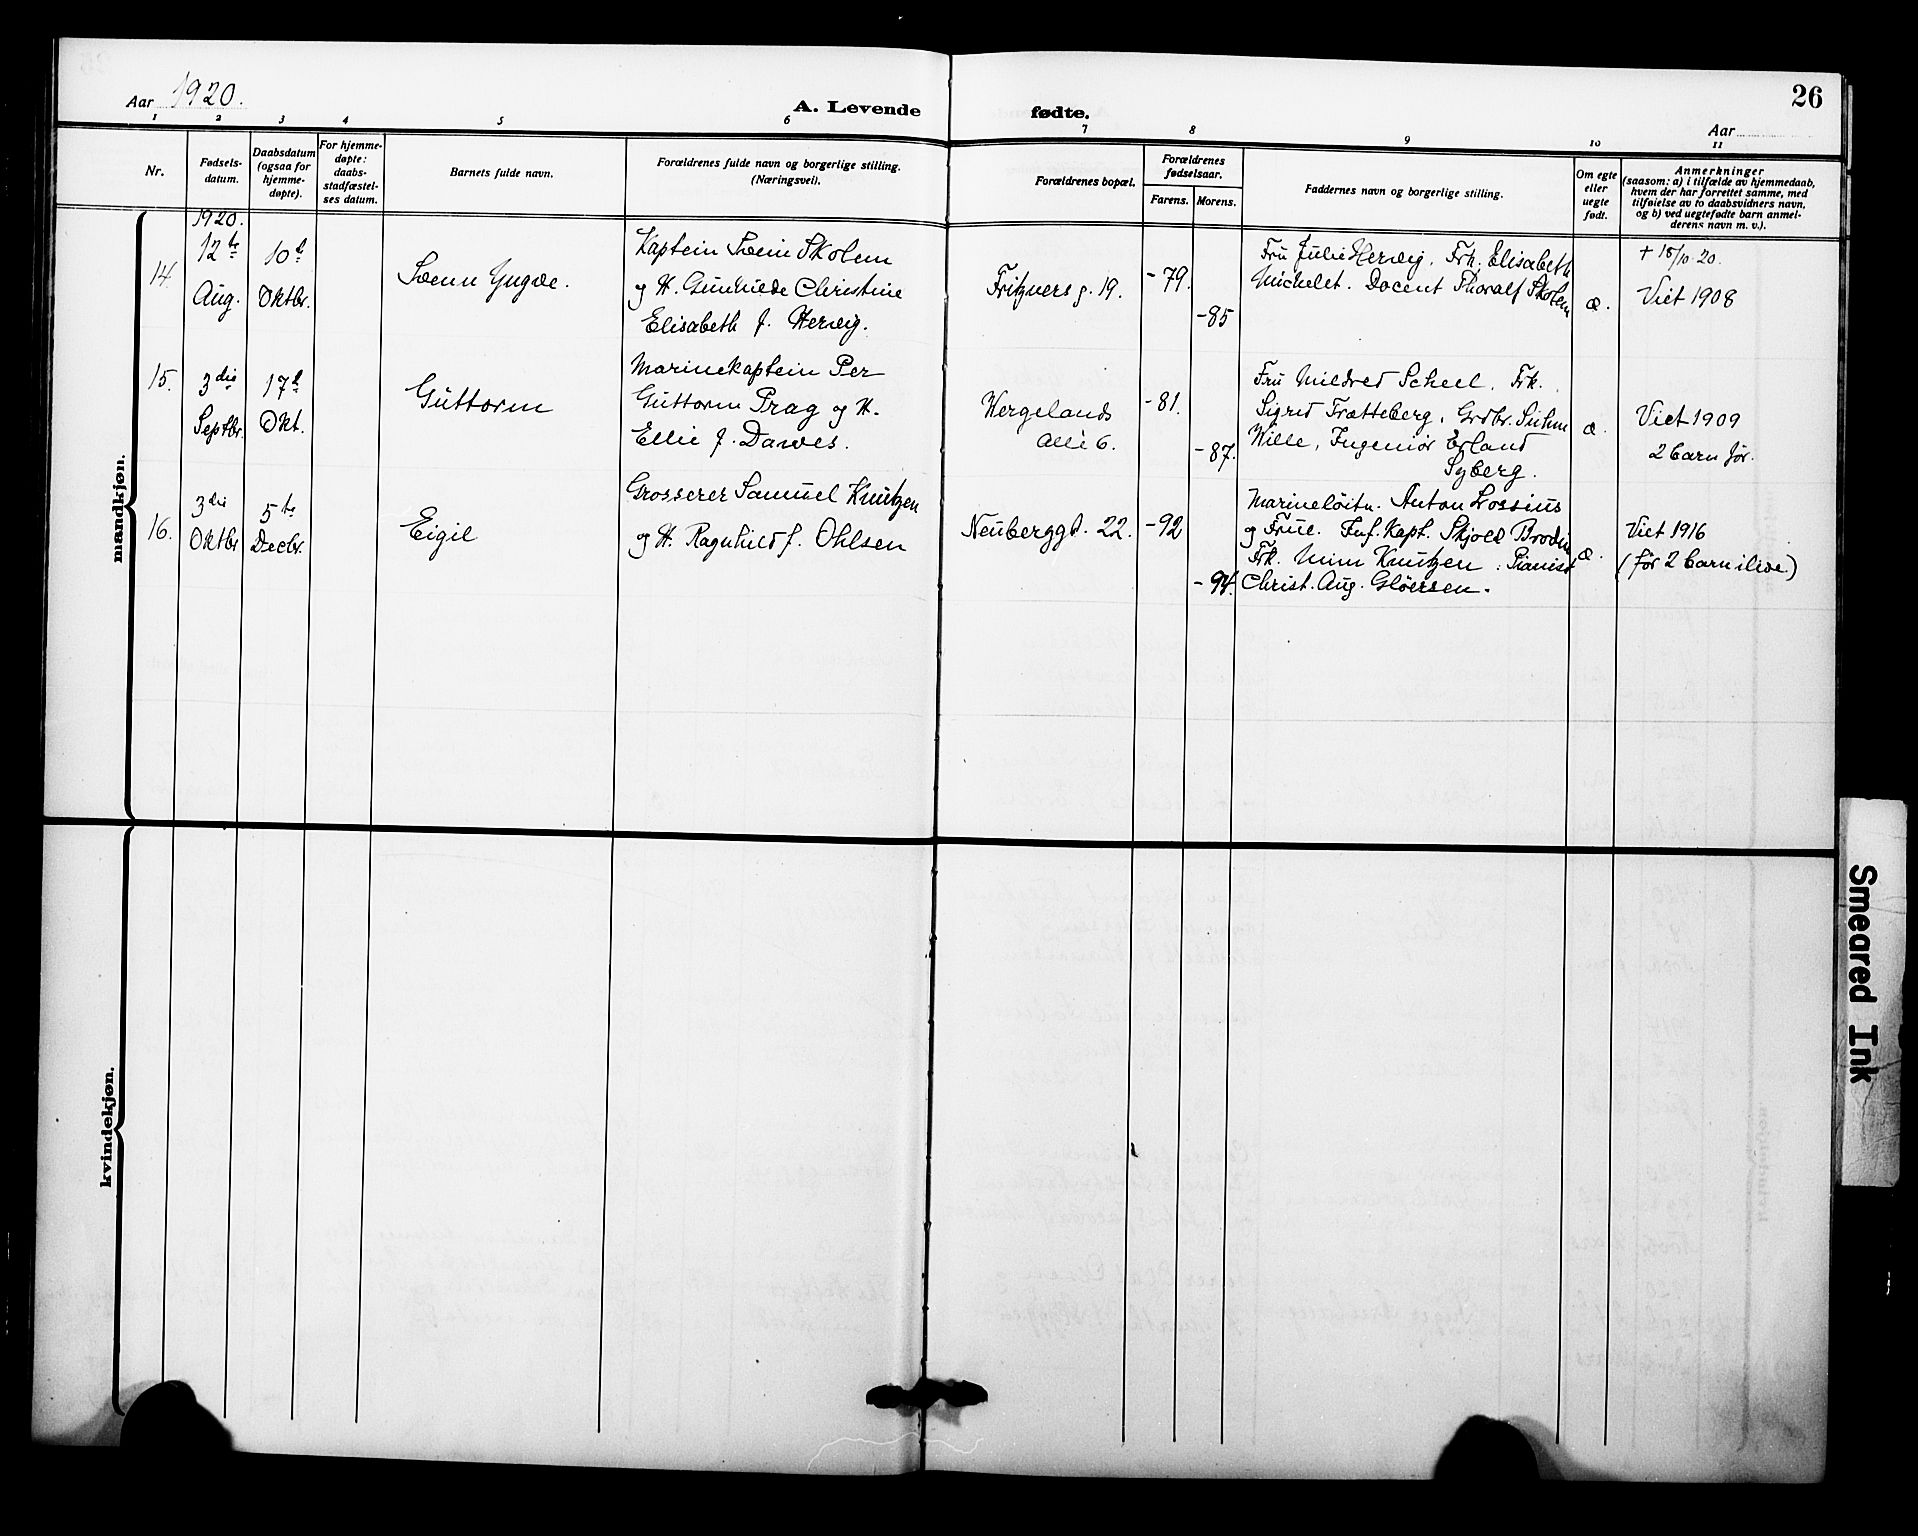 26
Aar 1920.
A. Levende fødte.
Aar
1 2 3 4 5 6 7 8 9 10 11
Nr.
Fødsels-
datum.
Daabsdatum
(ogsaa for
hjemme-
døpte).
For hjemme-
døpte:
daabs-
stadfæstel-
ses datum.
Barnets fulde navn.
Forældrenes fulde navn og borgerlige stilling.
(Næringsvei).
Forældrenes bopæl.
Forældrenes
fødselsaar.
Farens. Morens.
Faddernes navn og borgerlige stilling.
Om egte
eller
uegte
født.
Anmerkninger
(saasom: a) i tilfælde av hjemmedaab,
hvem der har forrettet samme, med
tilføielse av to daabsvidners navn,
og b) ved uegtefødte barn anmel-
derens navn m. v.).
mandkjøn.
1920.
14.
12te
Aug.
10d
Oktbr.
Svenn Yngve.
Kaptein Svein Skolem
og H. Gunhilde Christine
Elisabeth f. Herwig.
Fritzners g. 19.
-79.
-85
Fru Julie Herwig. Frk. Elisabeth
Michelet. Docent Thoralf Skolem
æ.
Viet 1908
15.
3die
Septbr.
17d
Okt.
Guttorm
Marinekaptein Per
Guttorm Prag og H.
Ellie f. Dawes.
Wergelands
alle 6.
-81.
-87.
Fru Mildred Scheel. Frk.
Sigrid Frætteberg, Grdbr. Suhm
Wille, Ingeniør Erland
Syberg.
æ.
Viet 1909
2 barn før.
16.
3die
Oktbr
5te
Decbr.
Eigil
Grosserer Samuel Knutzen
og H. Ragnhild f. Ohlsen
Neuberggt. 22.
-92
-94.
Marineløitn. Anton Lossius
og Frue. Inf. Kapt. Skjold
Frk. Mim Knutzen. Pianist
Christ. Aug. Gløersen.
æ.
Viet 1916
(før 2 barn i live)
kvindekjøn.
Smeared Ink